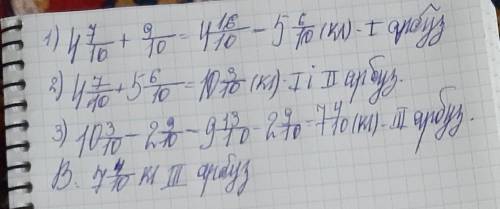 1) 4 7/10 + 9/10 = 4 16/10 - 5 6/10 (кл) - I арбуз
2) 4 7/10 + 5 6/10 = 10 3/10 (кл) - I i II арбуз.
3) 10 3/10 - 2 9/10 - 9 13/10 - 2 9/10 = 7 4/10 (кл) - III арбуз.
В. 7 4/10 кл III арбуз